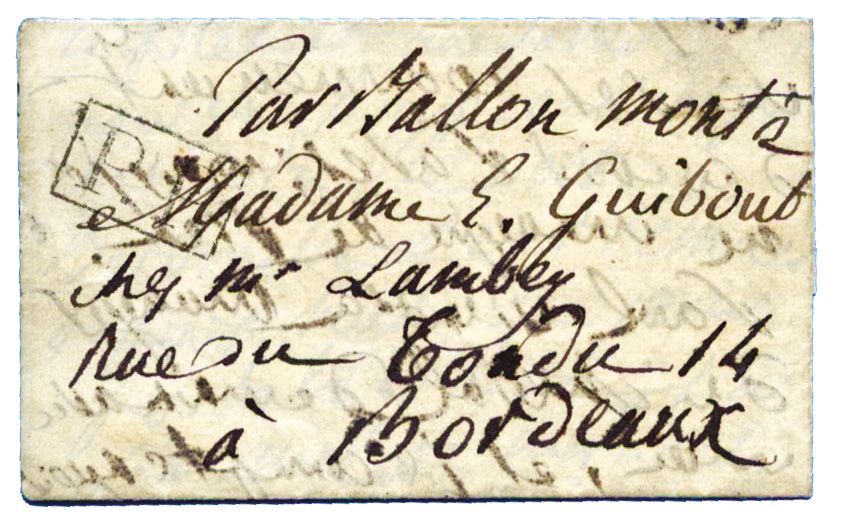 Par Ballon monté
Madame E. Guibout
chez mr Lambey
Rue du Tondu 14
à Bordeaux